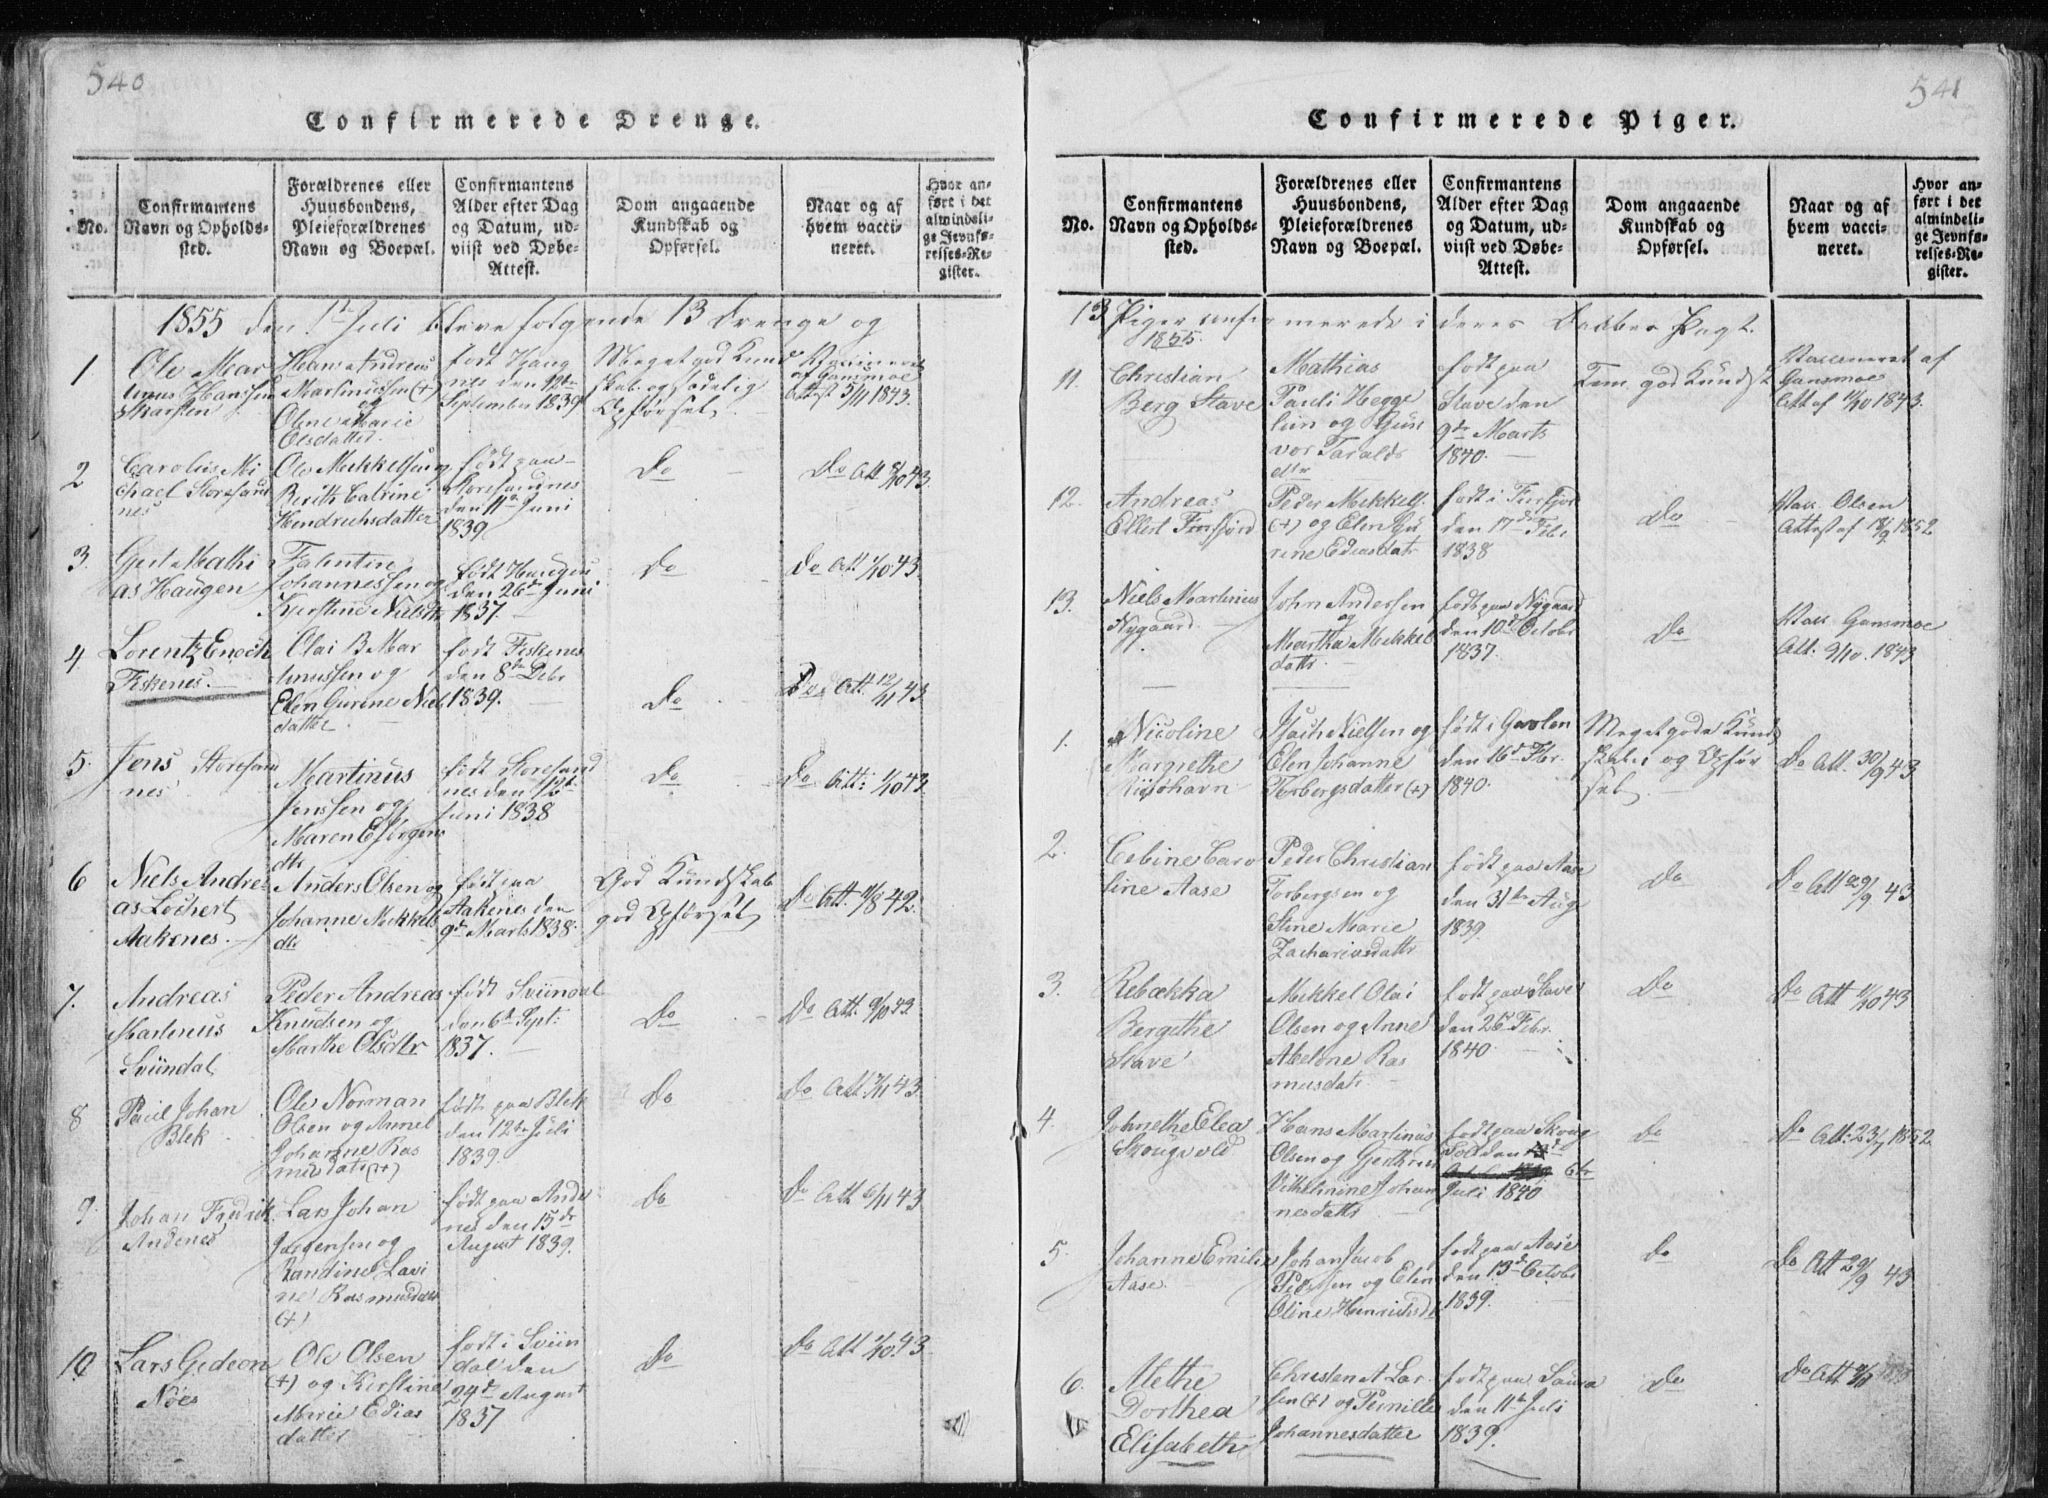 540
Confirmerede Drenge.
No.
Confirmantens
Navn og Opholds-
sted.
Forældrenes eller
Huusbondens,
Pleieforældrenes
Navn og Boepæl.
Confirmantens
Alder efter Dag
og Datum, ud-
viist ved Døbe-
Attest.
Dom angaaende
Kundskab og
Opførsel.
Naar og af
hvem vacci-
neret.
Hvor an-
ført i det
almindeli-
ge Jevnfø-
relses-Re-
gister.
1855 den 1ste Juli bleve følgende 13 Drenge og
1
Ole Mar
tinus Hanssen
Hans Andreas
Martinussen (+)
og
Oline Marie
Olsdatter
født Haug
nes den 12te
September 1839
Meget god Kund
skab og sædelig
Opførsel
af Gansmoe
Attest 5/11 1843.
2
Carolus Mi
chael Storesand
nes
Ole Mekkelsen og
Berith Catrine
Hendrichsdatter
født paa
Storesandnes
den 11te Juni
1839
Do
Do Att 8/10 43.
3.
Gjert Mathi
as Haugen
Falentin
Johannessen og
Kjerstine Nielsdtr
født Haugen
den 26de Juni
1837.
Do
Do Att 1/10 43.
4
Lorentz Enoch
Fiskenes.
Olai B Mar
tinussen og
Elen Gurine Niels
datter
født Fiskenes
den 8de Debr
1839.
Do
Do Att. 12/11 43.
5.
Jens Storesand
nes
Martinus
Jenssen og
Maren E Jørgens
dtr
født Storesand
nes den
Juni 1838
Do
Do Att: 1/10 43.
6
Niels Andre-
as Lochert
Aakenes.
Anders Olsen og
Johanne Mekkels
dtr
født paa
Aakenes den
9de Marts 1838.
God Kundskab
god Opførsel
Do Att. 11/8 42.
7.
Andreas
Martinus
Svündal
Peder Andreas
Knudsen og
Marthe Olsdtr
født Svündal
den 6te Sept:
1837.
Do
Do Att: 9/10 43
8
Paul Johan
Blek
Ole Norman
Olsen og Anne
Johanne Ras
musdatr (+)
født paa Blek
den 12te Juli
1839.
Do
Do Att. 7/11 43.
9.
Johan Fredrik
Andenes
Lars Johan
Jørgensen og
Randine Lavi
ne Rasmusdatter
(+)
født paa Ande
nes den 15de
August 1839.
Do
Do Att 6/11 43
10
Lars Gedeon
Nöes
Ole Olsen
(+) og Kirstine
Marie Edias
datter
født i Svün
dal den
24de August
1837
Do
Do Att 1/10 43.
541
Confirmerede Piger.
No.
Confirmantens
Navn og Opholds-
sted.
Forældrenes eller
Huusbondens,
Pleieforældrenes
Navn og Boepæl.
Confirmantens
Alder efter Dag
og Datum, ud-
viist ved Døbe-
Attest.
Dom angaaende
Kundskab og
Opførsel.
Naar og af
hvem vacci-
neret.
Hvor an-
ført i det
almindeli-
ge Jevnfø-
relses-Re-
gister.
13 Piger confirmerede i deres Daabes Pagt.
1855.
11.
Christian
Berg Stave
Mathias
Pauli Hegge
lun og Gun
vor Taralds
dtr
født paa
Stave den
9de Marts
1840.
Tem. god Kundsk
Vaccineret af
Gansmoe
Att af 11/10 1843.
12.
Andreas
Ellert Forfjord
Peder Mekkels.
(+) og Elen Gu
rine Ediasdatr
født i Forfjor
den 17de Febr
1838
Do
Vacc. Olsen
Attest af 18/9 1852
13.
Niels Martinus
Nygaard.
John Andersen
og
Martha Mekkel
datr.
født paa Nygaard
den 10de Octobr
1837.
Do
Vacc. Gansmoe
Att. 9/10. 1843
1.
Nicoline
Margrethe
Risøhavn
Isach Nielsen og
Elen Johanne
Torbergsdatter (+)
født i Gavlen
den 16de Febr.
1840.
Meget gode Kund
skaber og Opfør
sel.
Do Att. 30/9 43
2.
Cebine Caro
line Aase
Peder Christian
Torbergsen og
Stine Marie
Zachariasdatr
født paa Aase
den 31te Aug
1839.
Do
Do Att 29/9 43
3.
Rebækka
Bergithe
Stave
Mekkel Olai
Olsen og Anne
Abelone Ras
musdatr
født paa Stave
den 26de Febr.
1840
Do
Do Att 1/10 43
4.
Johnethe Elea
Skougvold
Hans Martinus
Olsen og Gjertrud
Vilhelmine Johan
nesdatr
født paa Skoug
vold den
6te
Juli 1840
Do
Do Att: 23/7 1852
5.
Johanne Emilie
Aase
Johan Jacob
Pedersen og Elen
Oline Henrichsd
født paa Aase
den 13de Octobr
1839.
Do
Do Att 29/9 43
6.
Methe
Dorthea
Elisabeth
Christen A Lar
sen (+) og Pernille
Johannesdatter
født paa Saura
den 11te Juli
1839.
Do
Do Att